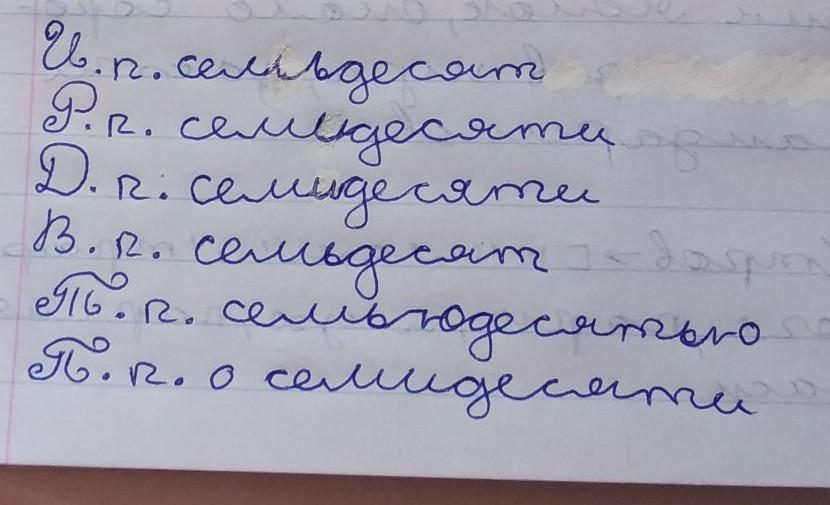 И.п. семьдесят
Р.п. семидесяти
Д.п. семидесяти
В.п. семьдесят
Тв.п. семьюдесятью
П.п. о семидесяти